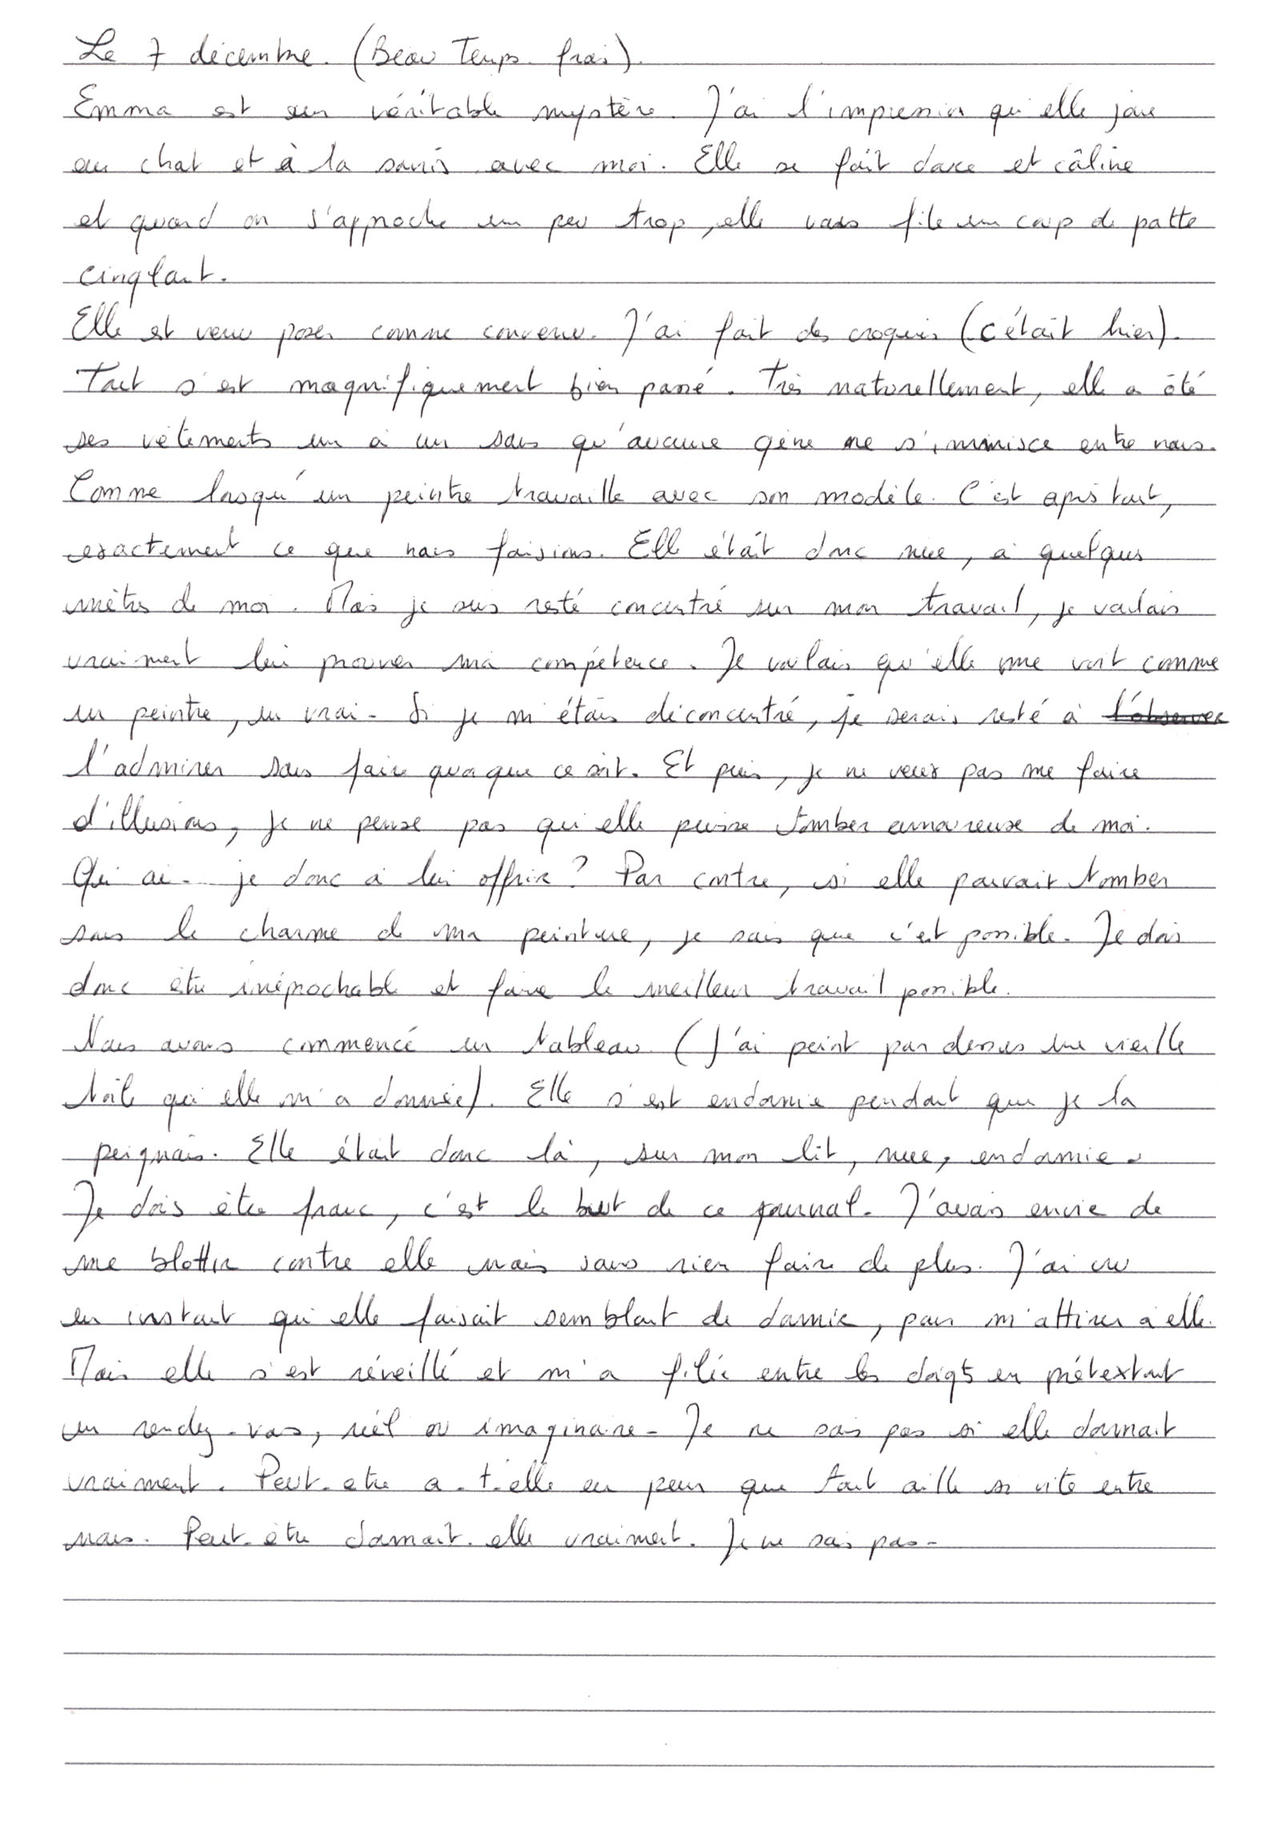 Le 7 décembre. (Beau Temps. frais).
Emma est un véritable mystère. J'ai l'impression qu'elle joue
au chat et à la souris avec moi. Elle se fait douce et câline
et quand on s'approche un peu trop, elle vous file un coup de patte
cinglant.
Elle est venu poser comme convenu. J'ai fait des croquis (c'était hier).
Tout s'est magnifiquement bien passé. Très naturellement, elle a ôté
ses vêtements un à un sans qu'aucune gène ne s'immisce entre nous.
Comme lorsqu'un peintre travaille avec son modèle. C'est après tout,
exactement ce que nous faisions. Elle était donc nue, à quelques
mètres de moi. Mais je suis resté concentré sur mon travail, je voulais
vraiment lui prouver ma compétence. Je voulais qu'elle me voit comme
un peintre, un vrai. Si je m'étais déconcentré, je serais resté à l'observer
l'admirer sans faire quoique ce soit. Et puis, je ne veux pas me faire
d'illusions, je ne pense pas qu'elle puisse tomber amoureuse de moi.
Qu'ai-je donc à lui offrir ? Par contre, si elle pouvait tomber
sous le charme de ma peinture, je sais que c'est possible. Je dois
donc être irréprochable et faire le meilleur travail possible.
Nous avons commencé un tableau (J'ai peint par dessus une vieille
toile qu'elle m'a donnée). Elle s'est endormie pendant que je la
peignais. Elle était donc là, sur mon lit, nue, endormie.
Je dois être franc, c'est le but de ce journal. J'avais envie de
me blottir contre elle mais sans rien faire de plus. J'ai cru
un instant qu'elle faisait semblant de dormir, pour m'attirer à elle.
Mais elle s'est réveillé et m'a filée entre les doigts en prétextant
un rendez-vous, réel ou imaginaire. Je ne sais pas si elle dormait
vraiment. Peut-etre a-t-elle eu peur que tout aille si vite entre
nous. Peut-être dormait-elle vraiment. Je ne sais pas.